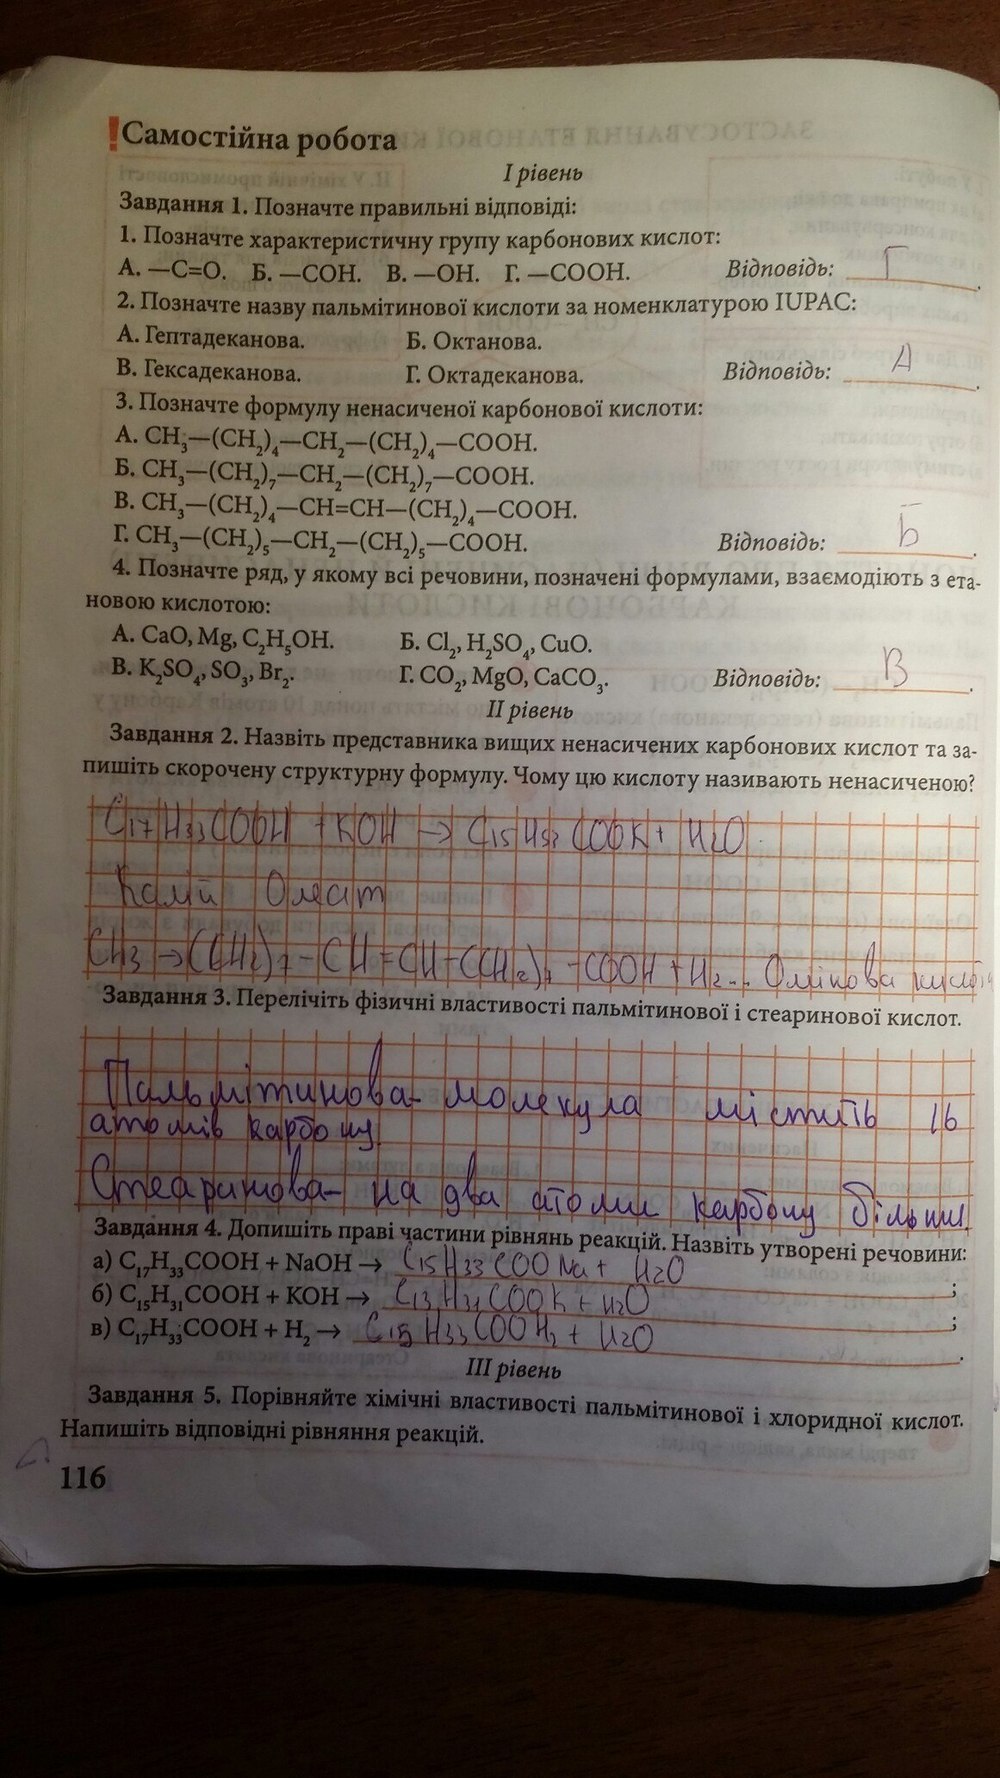 Самостійна робота
І рівень
Завдання 1. Позначте правильні відповіді:
1. Позначте характеристичну групу карбонових кислот:
А. —С=О. Б. —СОН. В. —ОН. Г. —СООН. Відповідь: Г.
2. Позначте назву пальмітинової кислоти за номенклатурою IUPAC:
А. Гептадеканова. Б. Октанова.
В. Гексадеканова. Г. Октадеканова. Відповідь: А.
3. Позначте формулу ненасиченої карбонової кислоти:
А. CH₃—(CH₂)₄—CH₂—(CH₂)₄—COOH.
Б. CH₃—(CH₂)₇—CH₂—(CH₂)₇—COOH.
В. CH₃—(CH₂)₄—CH=CH—(CH₂)₄—COOH.
Г. CH₃—(CH₂)₅—CH₂—(CH₂)₅—COOH. Відповідь: Б.
4. Позначте ряд, у якому всі речовини, позначені формулами, взаємодіють з ета-
новою кислотою:
А. CaO, Mg, C₂H₅OH. Б. Cl₂, H₂SO₄, CuO.
В. K₂SO₄, SO₃, Br₂. Г. CO₂, MgO, CaCO₃. Відповідь: В.
ІІ рівень
Завдання 2. Назвіть представника вищих ненасичених карбонових кислот та за-
пишіть скорочену структурну формулу. Чому цю кислоту називають ненасиченою?
C17H33COOH + KOH → COOK + H2O
Калій Олеат
CH3 →(CH2)7 - CH = CH - (CH2)7 - COOH + H2 Олінова кислота
Завдання 3. Перелічіть фізичні властивості пальмітинової і стеаринової кислот.
Пальмітинова - молекула містить 16
атомів карбону
Стеаринова - на два атоми карбону більше.
Завдання 4. Допишіть праві частини рівнянь реакцій. Назвіть утворені речовини:
а) C₁₇H₃₃COOH + NaOH → C15H33COONa + H2O;
б) C₁₅H₃₁COOH + KOH → C13H31COOK + H2O;
в) C₁₇H₃₃COOH + H₂ → C15H33COOH2 + H2O.
ІІІ рівень
Завдання 5. Порівняйте хімічні властивості пальмітинової і хлоридної кислот.
Напишіть відповідні рівняння реакцій.
116